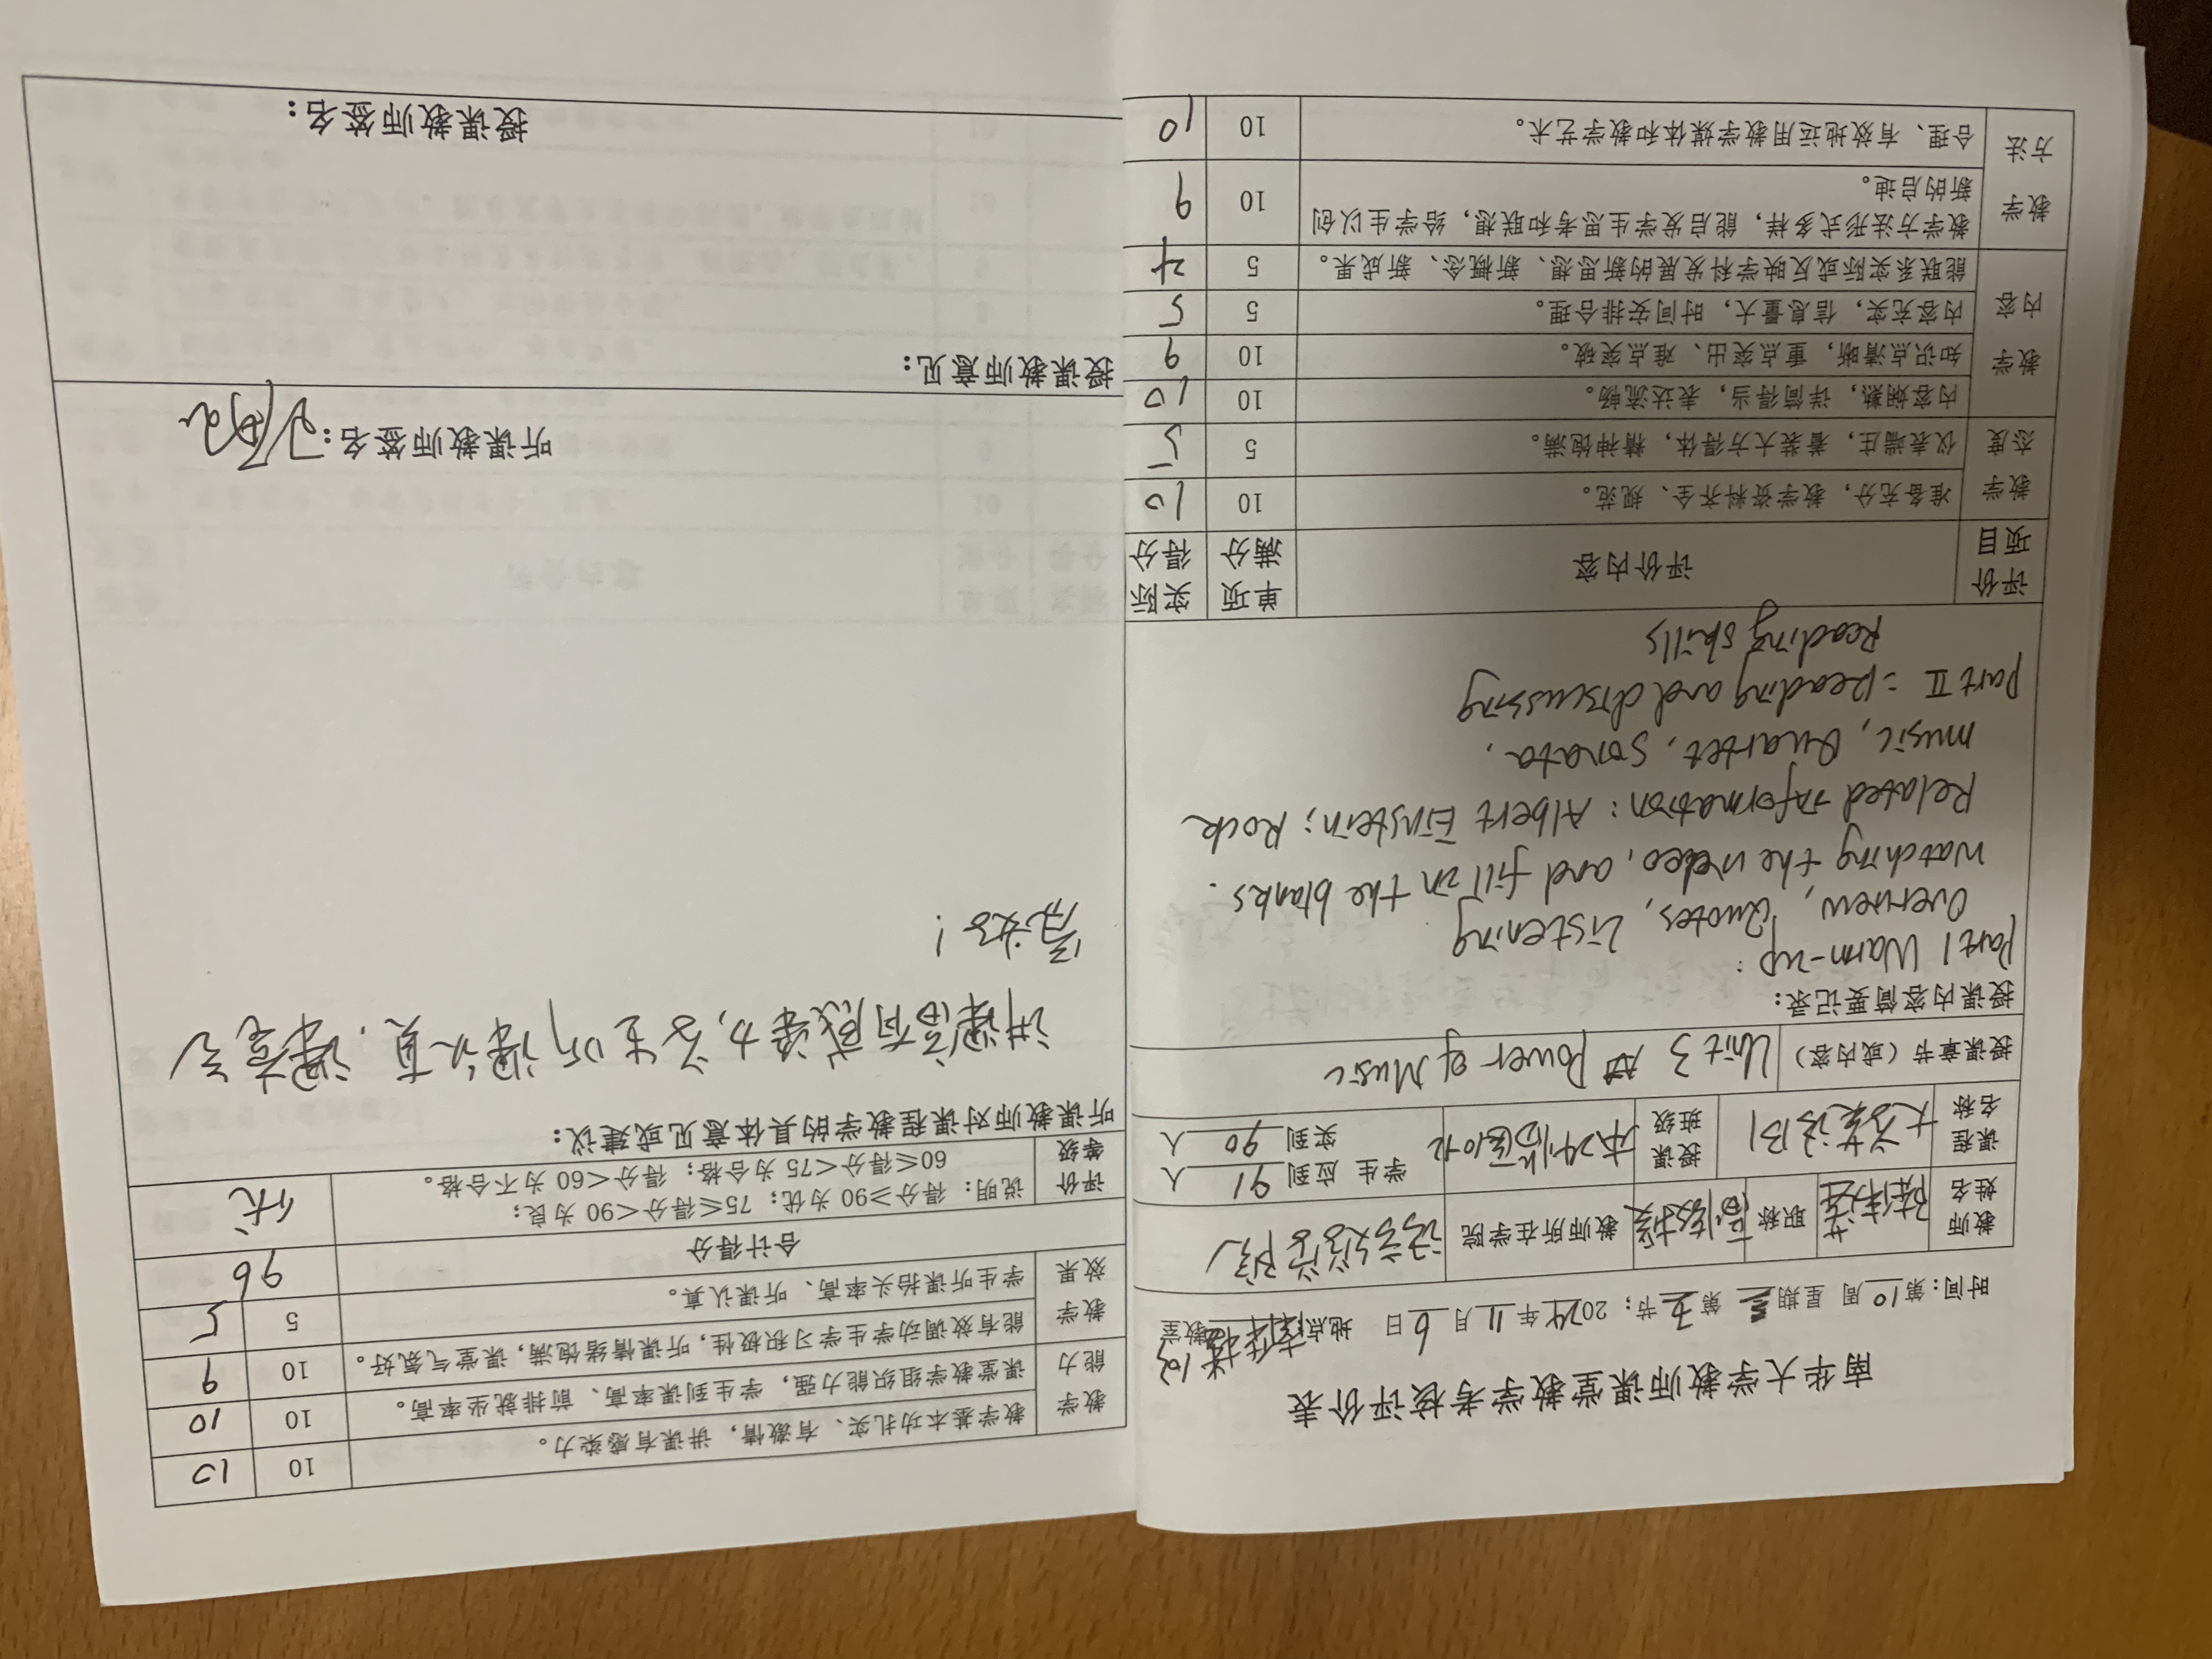 南华大学教师课堂教学考核评价表
时间：第10周 星期三 第3节；2024年11月6日 地点 103 教室
教师姓名 陈伟莲 职称 副教授 教师所在学院 语言文学学院
课程名称 大学英语B1 授课班级 本24临医10班 学生 应到 91 人 实到 90 人
授课章节（或内容） Unit 3 Power of Music
授课内容简要记录：
Part 1 Warm-up:
Overview, Quotes, Listening
Watching the video, and fill in the blanks.
Related information: Albert Einstein; Rock
music, Quartet, Sonata.
Part II = Reading and discussing
Reading skills
评价项目 评价内容 单项满分 实际得分
教学态度 准备充分，教学资料齐全、规范。 10 10
仪表端庄，着装大方得体，精神饱满。 5 5
教学内容 内容娴熟，详简得当，表达流畅。 10 10
知识点清晰，重点突出、难点突破。 10 9
内容充实，信息量大，时间安排合理。 5 5
能联系实际或反映学科发展的新思想、新概念、新成果。 5 4
教学方法 教学方法形式多样，能启发学生思考和联想，给学生以创
新的启迪。 10 9
合理、有效地运用教学媒体和教学艺术。 10 10
教学能力 教学基本功扎实、有激情，讲课有感染力。 10 10
课堂教学组织能力强，学生到课率高、前排就坐率高。 10 10
教学效果 能有效调动学生学习积极性，听课情绪饱满，课堂气氛好。 10 9
学生听课抬头率高、听课认真。 5 5
合计得分 96
评价等级 说明：得分≥90 为优；75≤得分<90 为良；
60≤得分<75 为合格；得分<60 为不合格。 优
听课教师对课程教学的具体意见或建议：
讲课富有感染力，学生听课认真，课堂气
氛好！
听课教师签名：
授课教师意见：
授课教师签名：